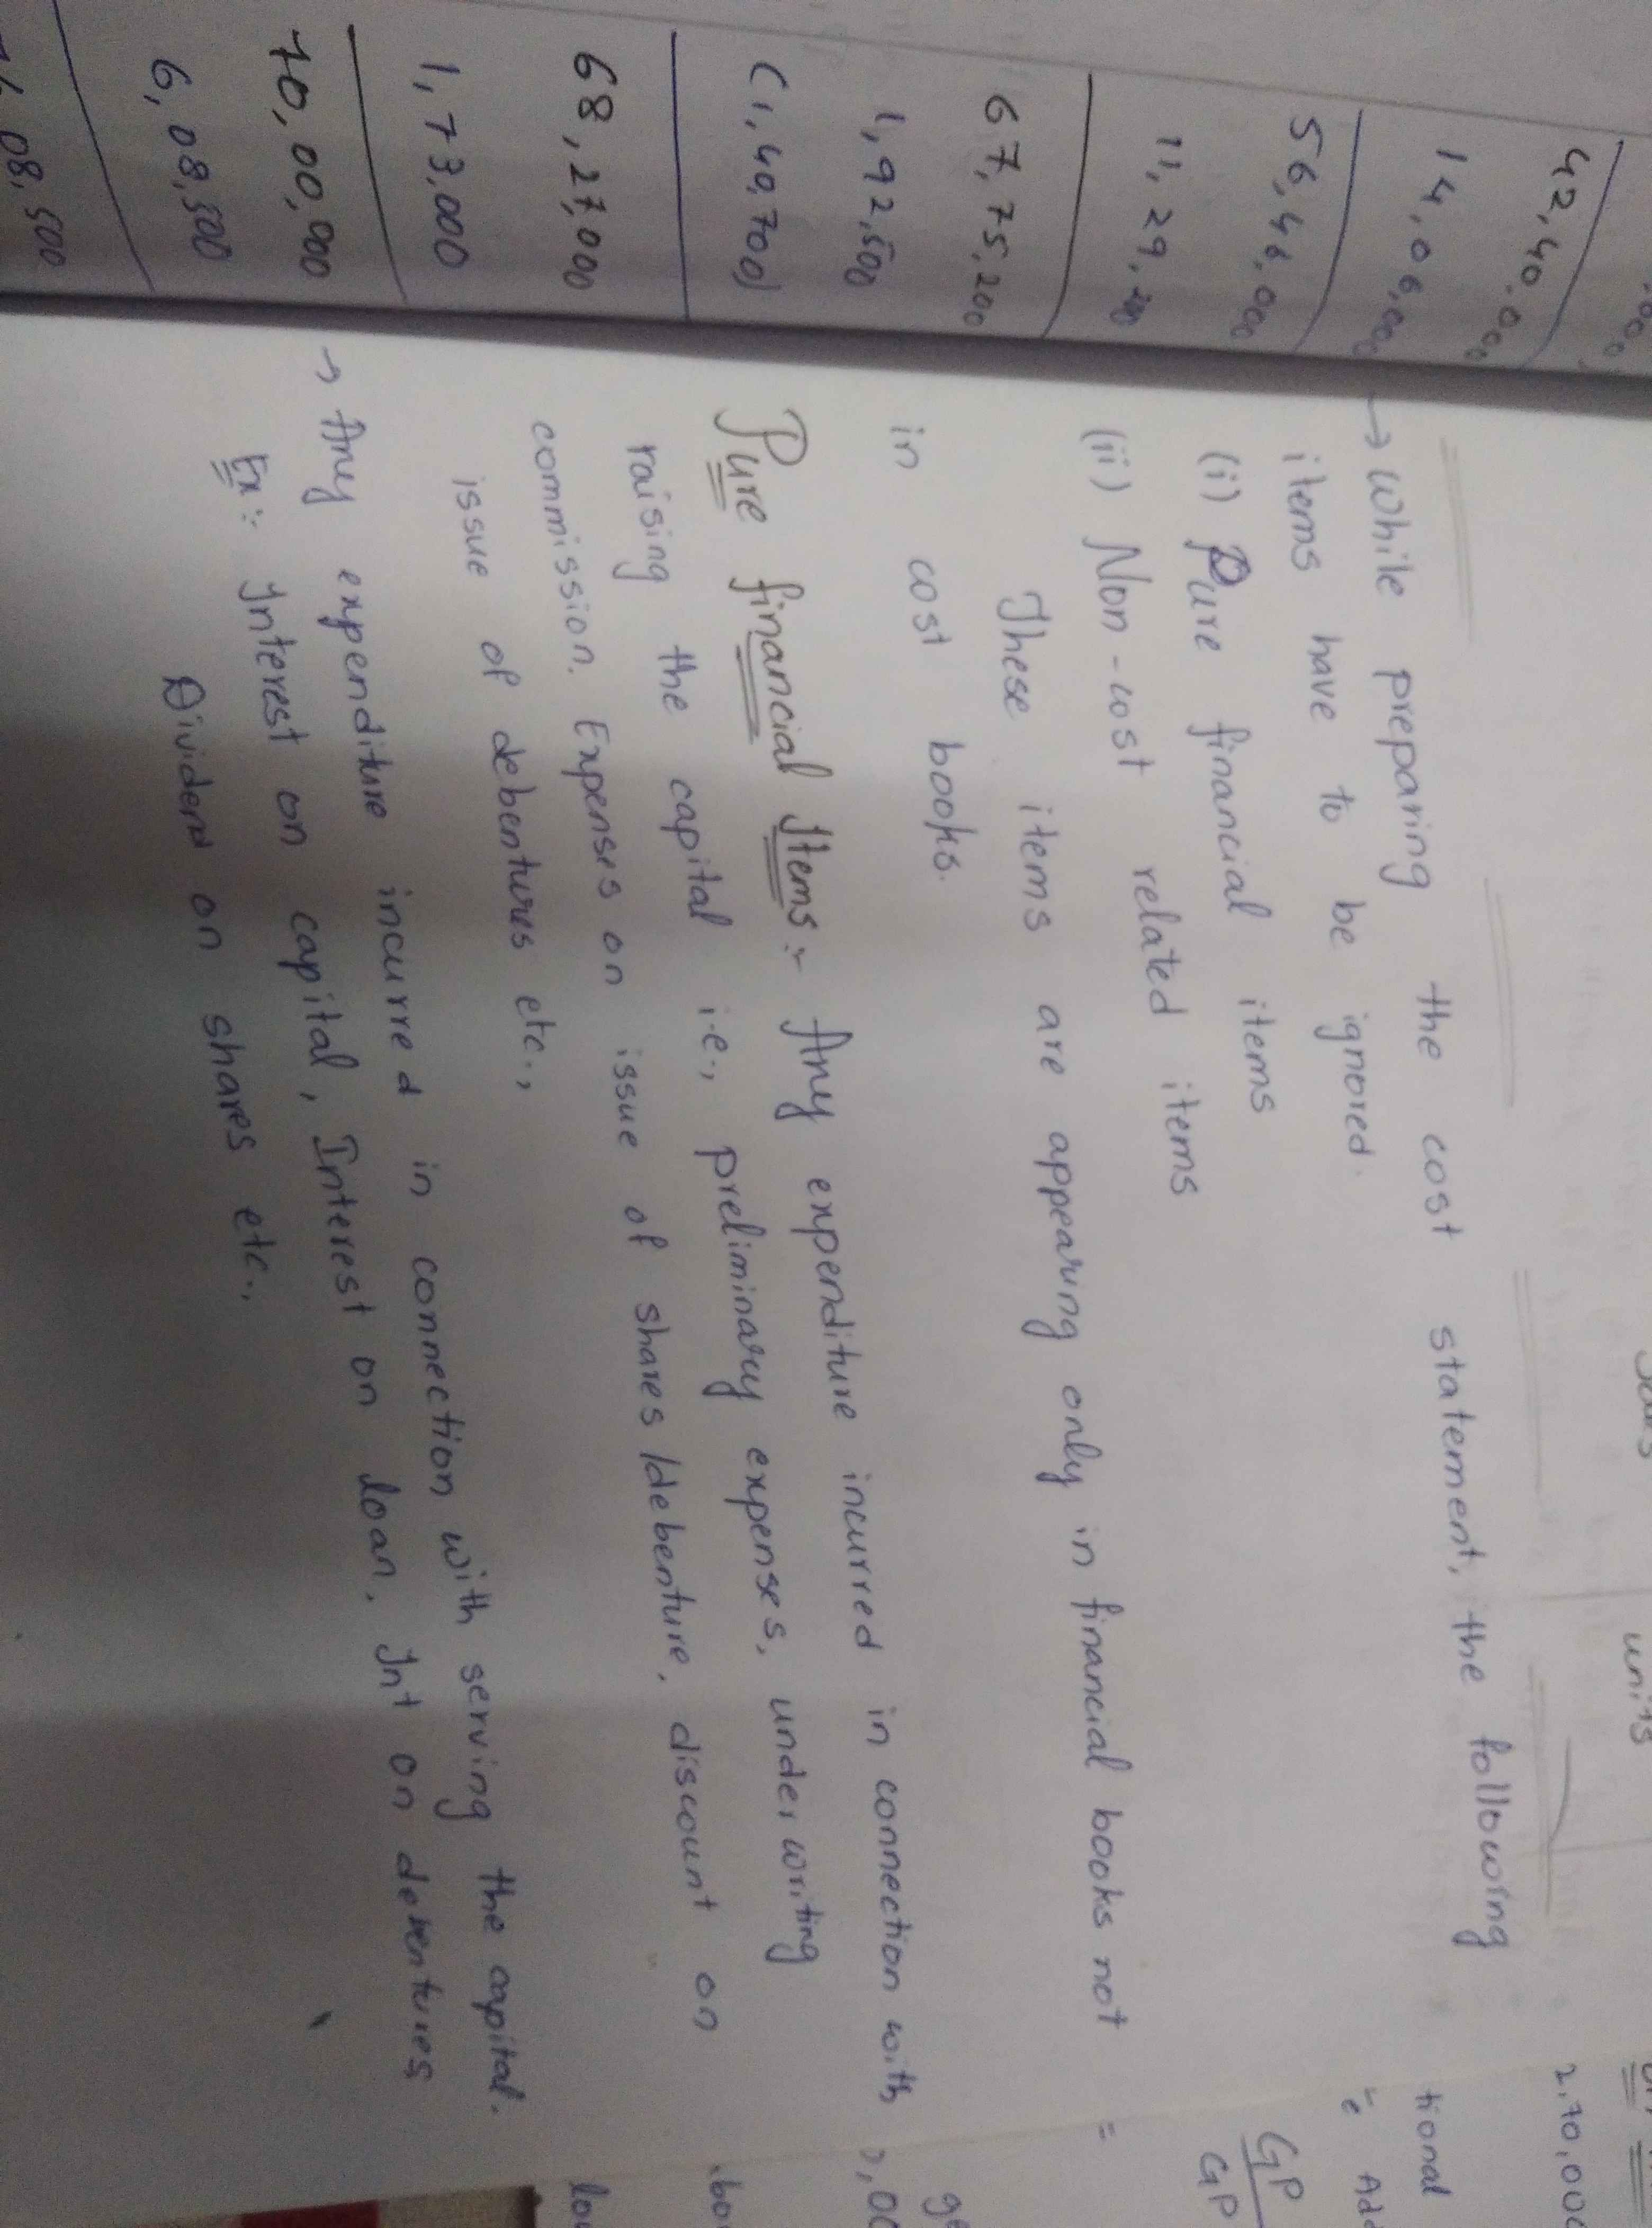 42,40,000
14,06,000
56,46,000
11,29,200
67,75,200
1,92,500
(1,40,700)
68,27,000
1,73,000
70,00,000
6,08,500
08,500
→ While preparing the cost statement, the following
items have to be ignored.
(i) Pure financial items
(ii) Non-cost related items
These items are appearing only in financial books not
in cost books.
Pure financial Items :- Any expenditure incurred in connection with
raising the capital i.e., preliminary expenses, under writing
commission. Expenses on issue of shares/debenture, discount on
issue of debentures etc.,
→ Any expenditure incurred in connection with serving the capital.
Ex :- Interest on capital, Interest on loan, Int on debentures
Dividend on shares etc.,
units
2,70,000
tional
GP
GP